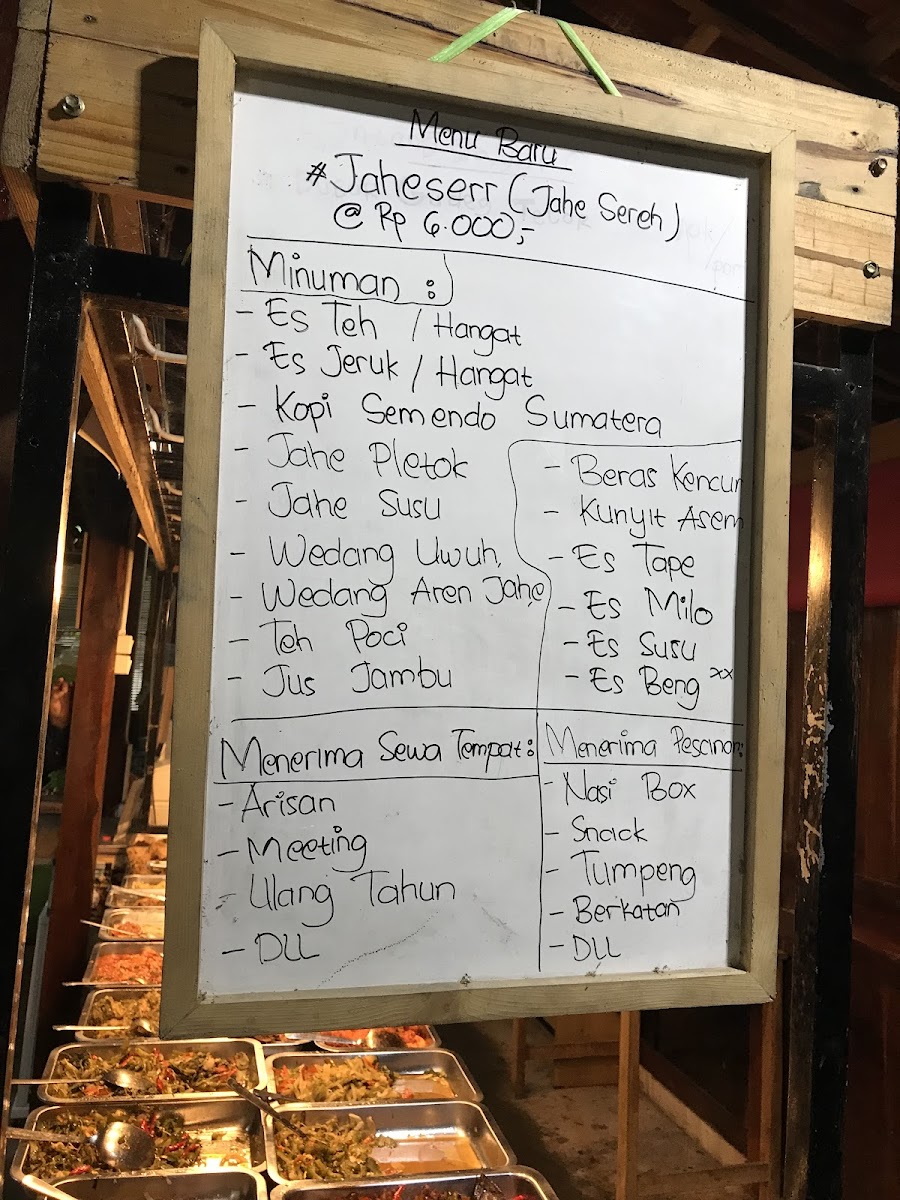 Menu Baru
#Jaheserr (Jahe Sereh)
@ Rp 6.000,-
Minuman :
- Es Teh / Hangat
- Es Jeruk / Hangat
- Kopi Semendo Sumatera
- Jahe Pletok
- Jahe Susu
- Wedang Uwuh,
- Wedang Aren Jahe
- Teh Poci
- Jus Jambu
- Beras Kencur
- Kunyit Asem
- Es Tape
- Es Milo
- Es Susu
- Es Beng xx
Menerima Sewa Tempat :
- Arisan
- Meeting
- Ulang Tahun
- DLL
Menerima Pesanan :
- Nasi Box
- Snack
- Tumpeng
- Berkatan
- DLL